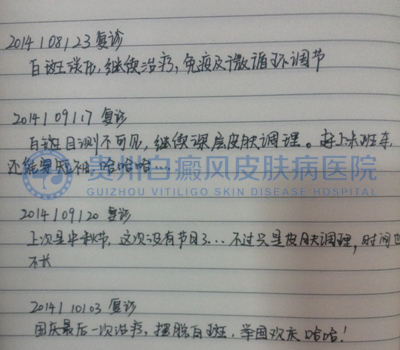 2014 1 08 1 23 复诊
白斑淡化,继续治疗,免疫及微循环调节
2014 1 09 1 17 复诊
白斑目测不可见,继续深层皮肤调理。赶上末班车,
还能穿短袖 哈哈哈...
贵州白癜风皮肤病医院
GUIZHOU VITILIGO SKIN DISEASE HOSPITAL
2014 1 09 1 20 复诊
上次是中秋节,这次没有节日了...不过只是皮肤调理,时间也
不长
2014 1 10 1 03 复诊
国庆最后一次治疗,摆脱白斑,举国欢庆 哈哈!